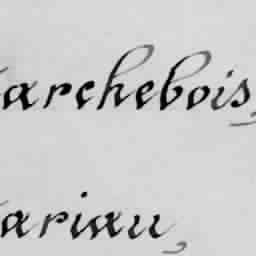 archebois,
ariau,